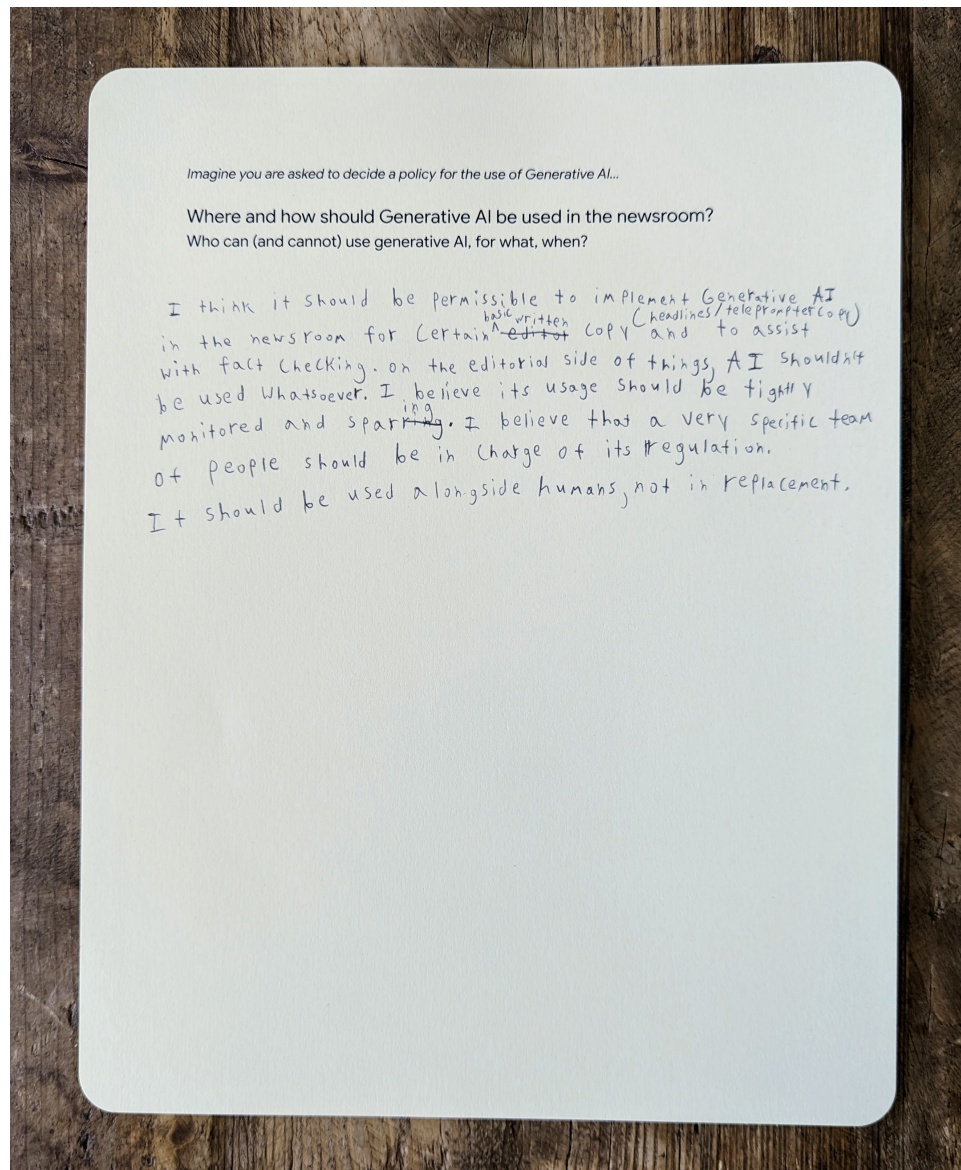 Imagine you are asked to decide a policy for the use of Generative AI...
Where and how should Generative AI be used in the newsroom?
Who can (and cannot) use generative AI, for what, when?
I think it should be permissible to implement Generative AI
in the newsroom for certain basic written copy (headlines/teleprompter copy) and to assist
with fact checking. on the editorial side of things, AI shouldn't
be used whatsoever. I believe its usage should be tightly
monitored and sparing. I believe that a very specific team
of people should be in charge of its regulation.
It should be used alongside humans, not in replacement.